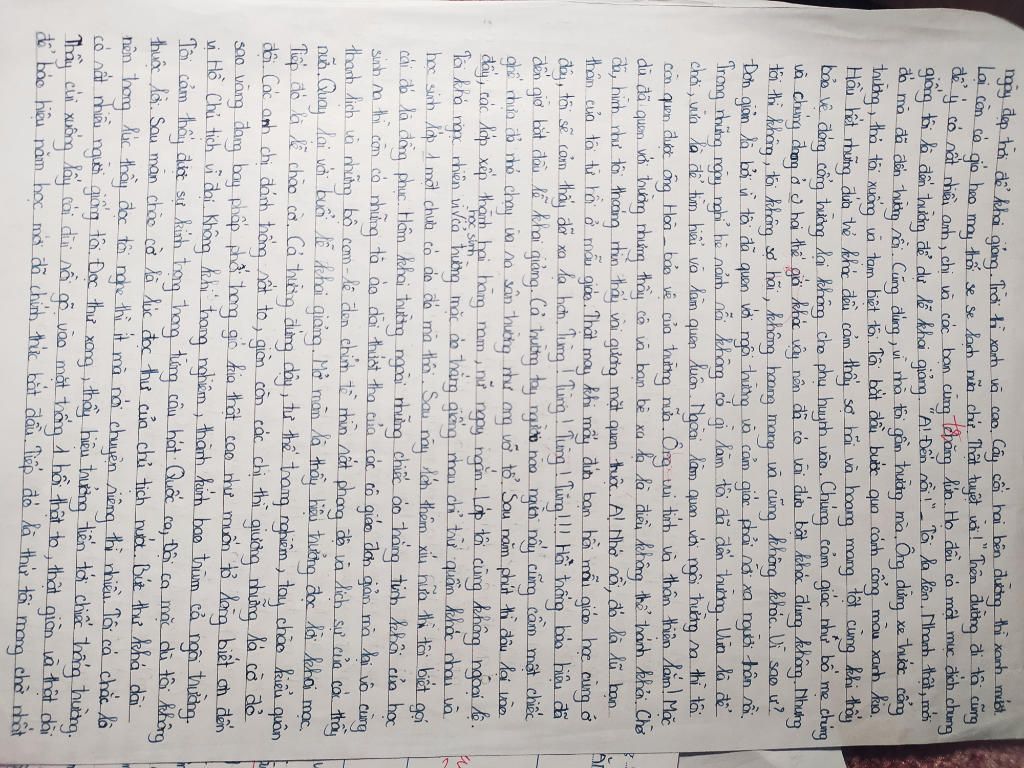 ngày đẹp trời để khai giảng. Trời thì xanh và cao. Cây cỏ hai bên đường thì xanh mướt
Lại còn có gió heo may thổi se se lạnh nữa chứ. Thật tuyệt vời! Trên đường đi tôi cũng
để ý có rất nhiều anh, chị và các bạn cùng tôi lứa. Họ đều có một mục đích chung
giống tôi là đến trường để dự lễ khai giảng. "A! Đến rồi" - Tôi la lên. Nhanh thật, mới
đó mà đã đến trường rồi. Cũng đúng, vì nhà tôi gần trường mà. Ông dừng xe trước cổng
trường, thả tôi xuống và tạm biệt tôi. Tôi bắt đầu bước qua cánh cổng màu xanh
Hầu hết những đứa trẻ khác đều cảm thấy sợ hãi và hoang mang tột cùng khi thấy
bảo vệ đóng cổng trường lại không cho phụ huynh vào. Chúng cảm giác như bố mẹ chúng
và chúng đang ở hai thế giới khác vậy nên đã có vài đứa bật khóc. Nhưng
tôi thì không, tôi không sợ hãi, không hoang mang và cũng không khóc. Vì sao ư?
Đơn giản là bởi vì tôi đã quen với ngôi trường và cảm giác phải rời xa người thân rồi.
Trong những ngày nghỉ hè rảnh rỗi không có gì làm tôi đã đến trường. Vừa là để
chơi, vừa là để tìm hiểu và làm quen luôn. Ngoài làm quen với ngôi trường ra thì tôi
còn quen được ông Hòa - bảo vệ của trường nữa. Ông vui tính và thân thiện lắm! Mặc
dù đã quen với trường nhưng thầy cô và bạn bè xa lạ là điều không thể tránh khỏi. Chờ
đã, hình như tôi thoáng nhìn thấy vài gương mặt quen thuộc. A! Nhớ rồi, đó là lũ bạn
thân của tôi từ hồi ở mẫu giáo. Thật may khi mấy đứa bạn hồi mẫu giáo học cùng ở
đây, tôi sẽ cảm thấy đỡ xa lạ hơn. Tùng! Tùng! Tùng! Tùng!!! Hồi trống báo hiệu đã
đến giờ bắt đầu lễ khai giảng. Cả trường tay người nào người nấy cũng cầm một chiếc
ghế nhựa đỏ nhỏ chạy ùa ra sân trường như ong vỡ tổ. Sau năm phút thì đâu lại vào
đấy, các lớp xếp thành hai hàng nam, nữ ngay ngắn. Lớp tôi cũng không ngoại lệ.
Tôi khá ngạc nhiên vừa thường học sinh mặc áo trắng giống nhau chỉ trừ quần khác nhau và
học sinh lớp 1 mới chưa có áo đỏ mà thôi. Sau này lớn thêm xíu nữa thì tôi biết gọi
cái đó là đồng phục. Hôm khai trường ngoài những chiếc áo trắng tinh khôi của học
sinh ra thì còn có những tà áo dài thướt tha của các cô giáo đơn giản mà lại vô cùng
thanh lịch và những bộ com-lê đen chỉnh tề nhìn rất phong độ và lịch sự của các thầy
nữa. Quay lại với buổi lễ khai giảng. Mở màn là thầy hiệu trưởng đọc lời khai mạc
Tiếp đó là lễ chào cờ. Cả trường đứng dậy, tư thế trang nghiêm, tay chào kiểu quân
đội. Các anh chị đánh trống rất to, giòn còn các chị thì giương những lá cờ đỏ
sao vàng đang bay phấp phới trong gió kia thật cao như muốn tỏ lòng biết ơn đến
vị Hồ Chủ tịch vĩ đại. Không khí trang nghiêm, thành kính bao trùm cả ngôi trường.
Tôi cảm thấy được sự kính trọng trong từng câu hát Quốc ca, Đội ca mặc dù tôi không
thuộc lời. Sau màn chào cờ là lúc đọc thư của chủ tịch nước. Bức thư khá dài
nên trong lúc thầy đọc tôi nghe thì ít mà nói chuyện riêng thì nhiều. Tôi cá chắc là
có rất nhiều người giống tôi. Đọc thư xong, thầy hiệu trưởng tiến tới chiếc trống trường.
Thầy cúi xuống lấy cái dùi rồi gõ vào mặt trống 1 hồi thật to, thật giòn và thật dài
để báo hiệu năm học mới đã chính thức bắt đầu. Tiếp đó là thứ tôi mong chờ nhất